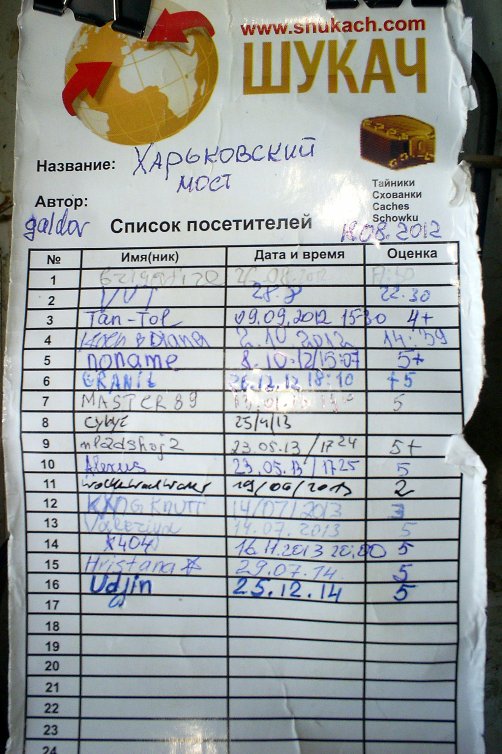 www.shukach.com
ШУКАЧ
Название: Харьковский
мост
Тайники
Схованки
Caches
Schowku
Автор:
galdov
Список посетителей 19.08.2012
№ Имя(ник) Дата и время Оценка
1
2 28.8 22.30
3 Tan-Tol 09.09.2012 15:30 4+
4 2.10 2012 14:59
5 noname 8.10.12/15:07 5+
6 GRANIT 18:10 +5
7 MASTER89 5
8 25/4/13
9 mladshoj2 23.05.13/17 24 5+
10 Alexus 23.05.13/1725 5
11 19/06/2013 2
12 14/07/2013
13 Valeriya 14.07.2013 5
14 X404 16.11.2013 20:00 5
15 Hristana 29.07.14 5
16 Udjin 25.12.14 5
17
18
19
20
21
22
23
24